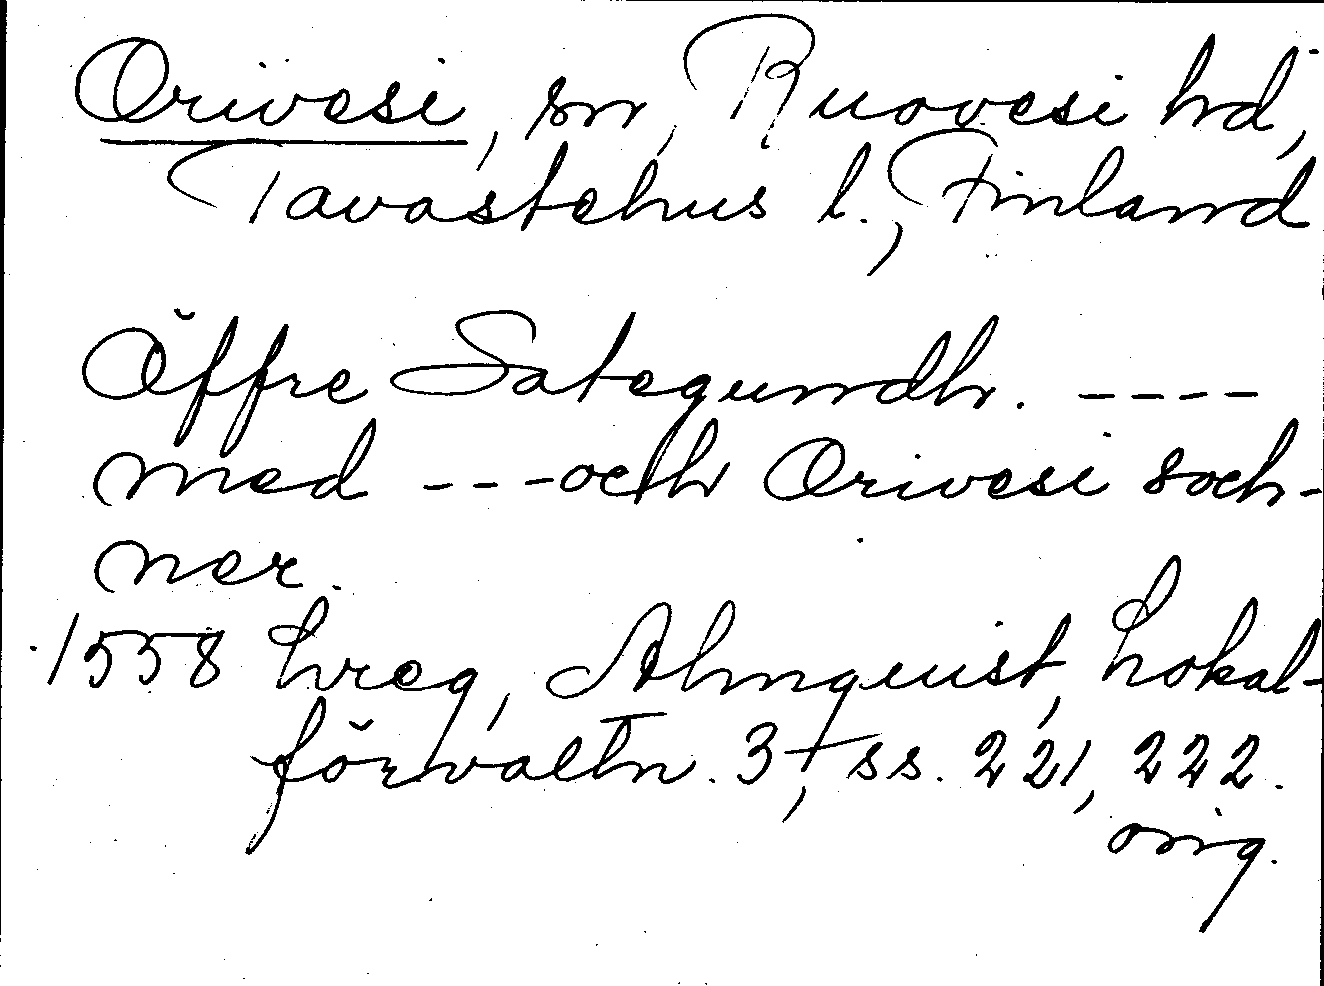 Orivesi, sn, Ruovesi hd,
Tavastehus l., Finland
Öffre Sategundh. ----
med --- och Orivesi soch-
ner.
1558 hreg, Almquist, Lokal-
förvaltn. 3, ss. 221, 222.
orig.